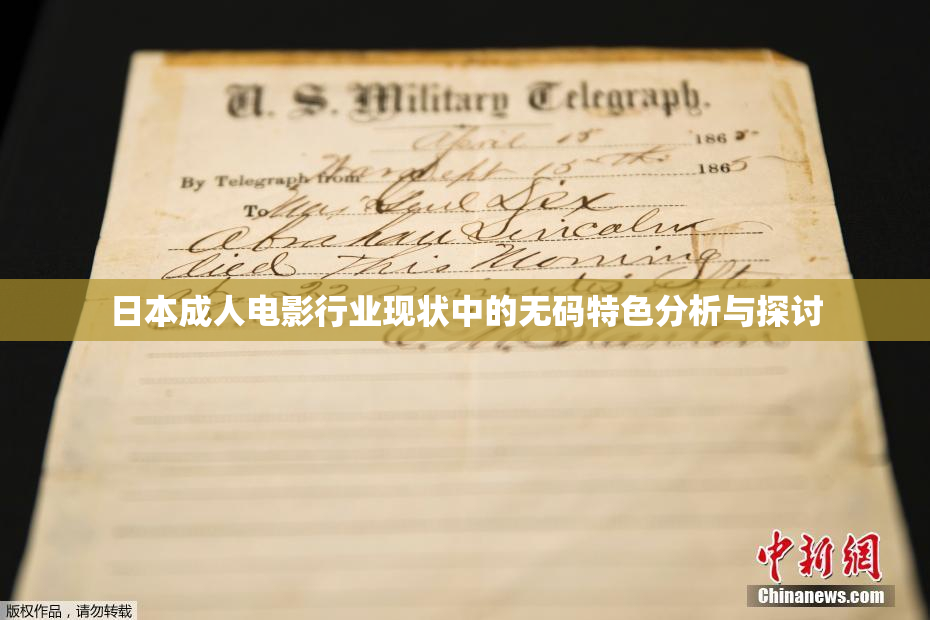 U. S. Military Telegraph.
April 15 1865
By Telegraph from War Dept 15th 1865
To Maj Genl Dix
Abraham Lincoln
died This Morning
at 22 minutes after
日本成人电影行业现状中的无码特色分析与探讨
E. M. Stanton
中新網
Chinanews.com
版权作品,请勿转载